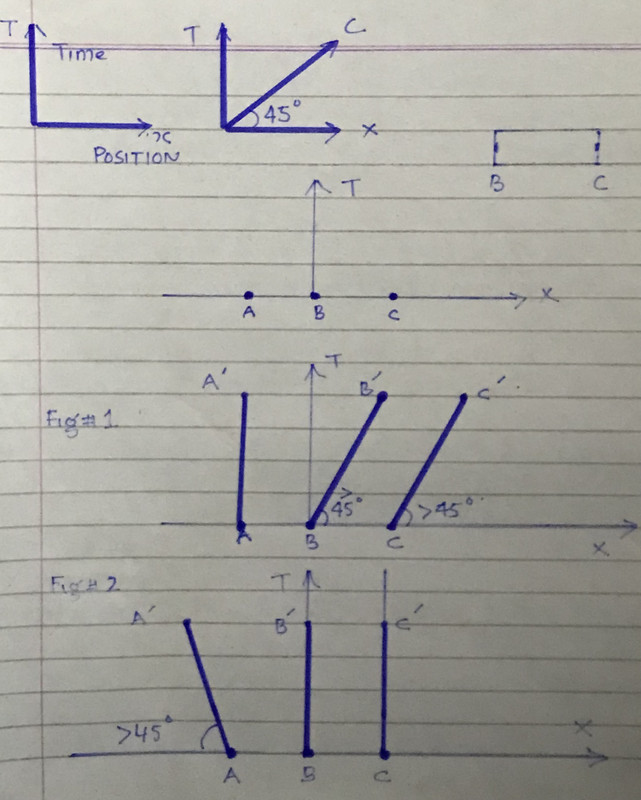 T
Time
x
POSITION
T
C
45°
X
B C
T
A B C
X
Fig# 1
A'
T
B'
C'
>
45°
>45°
A B C
X
Fig# 2
T
A'
B'
C'
>45°
X
A B C